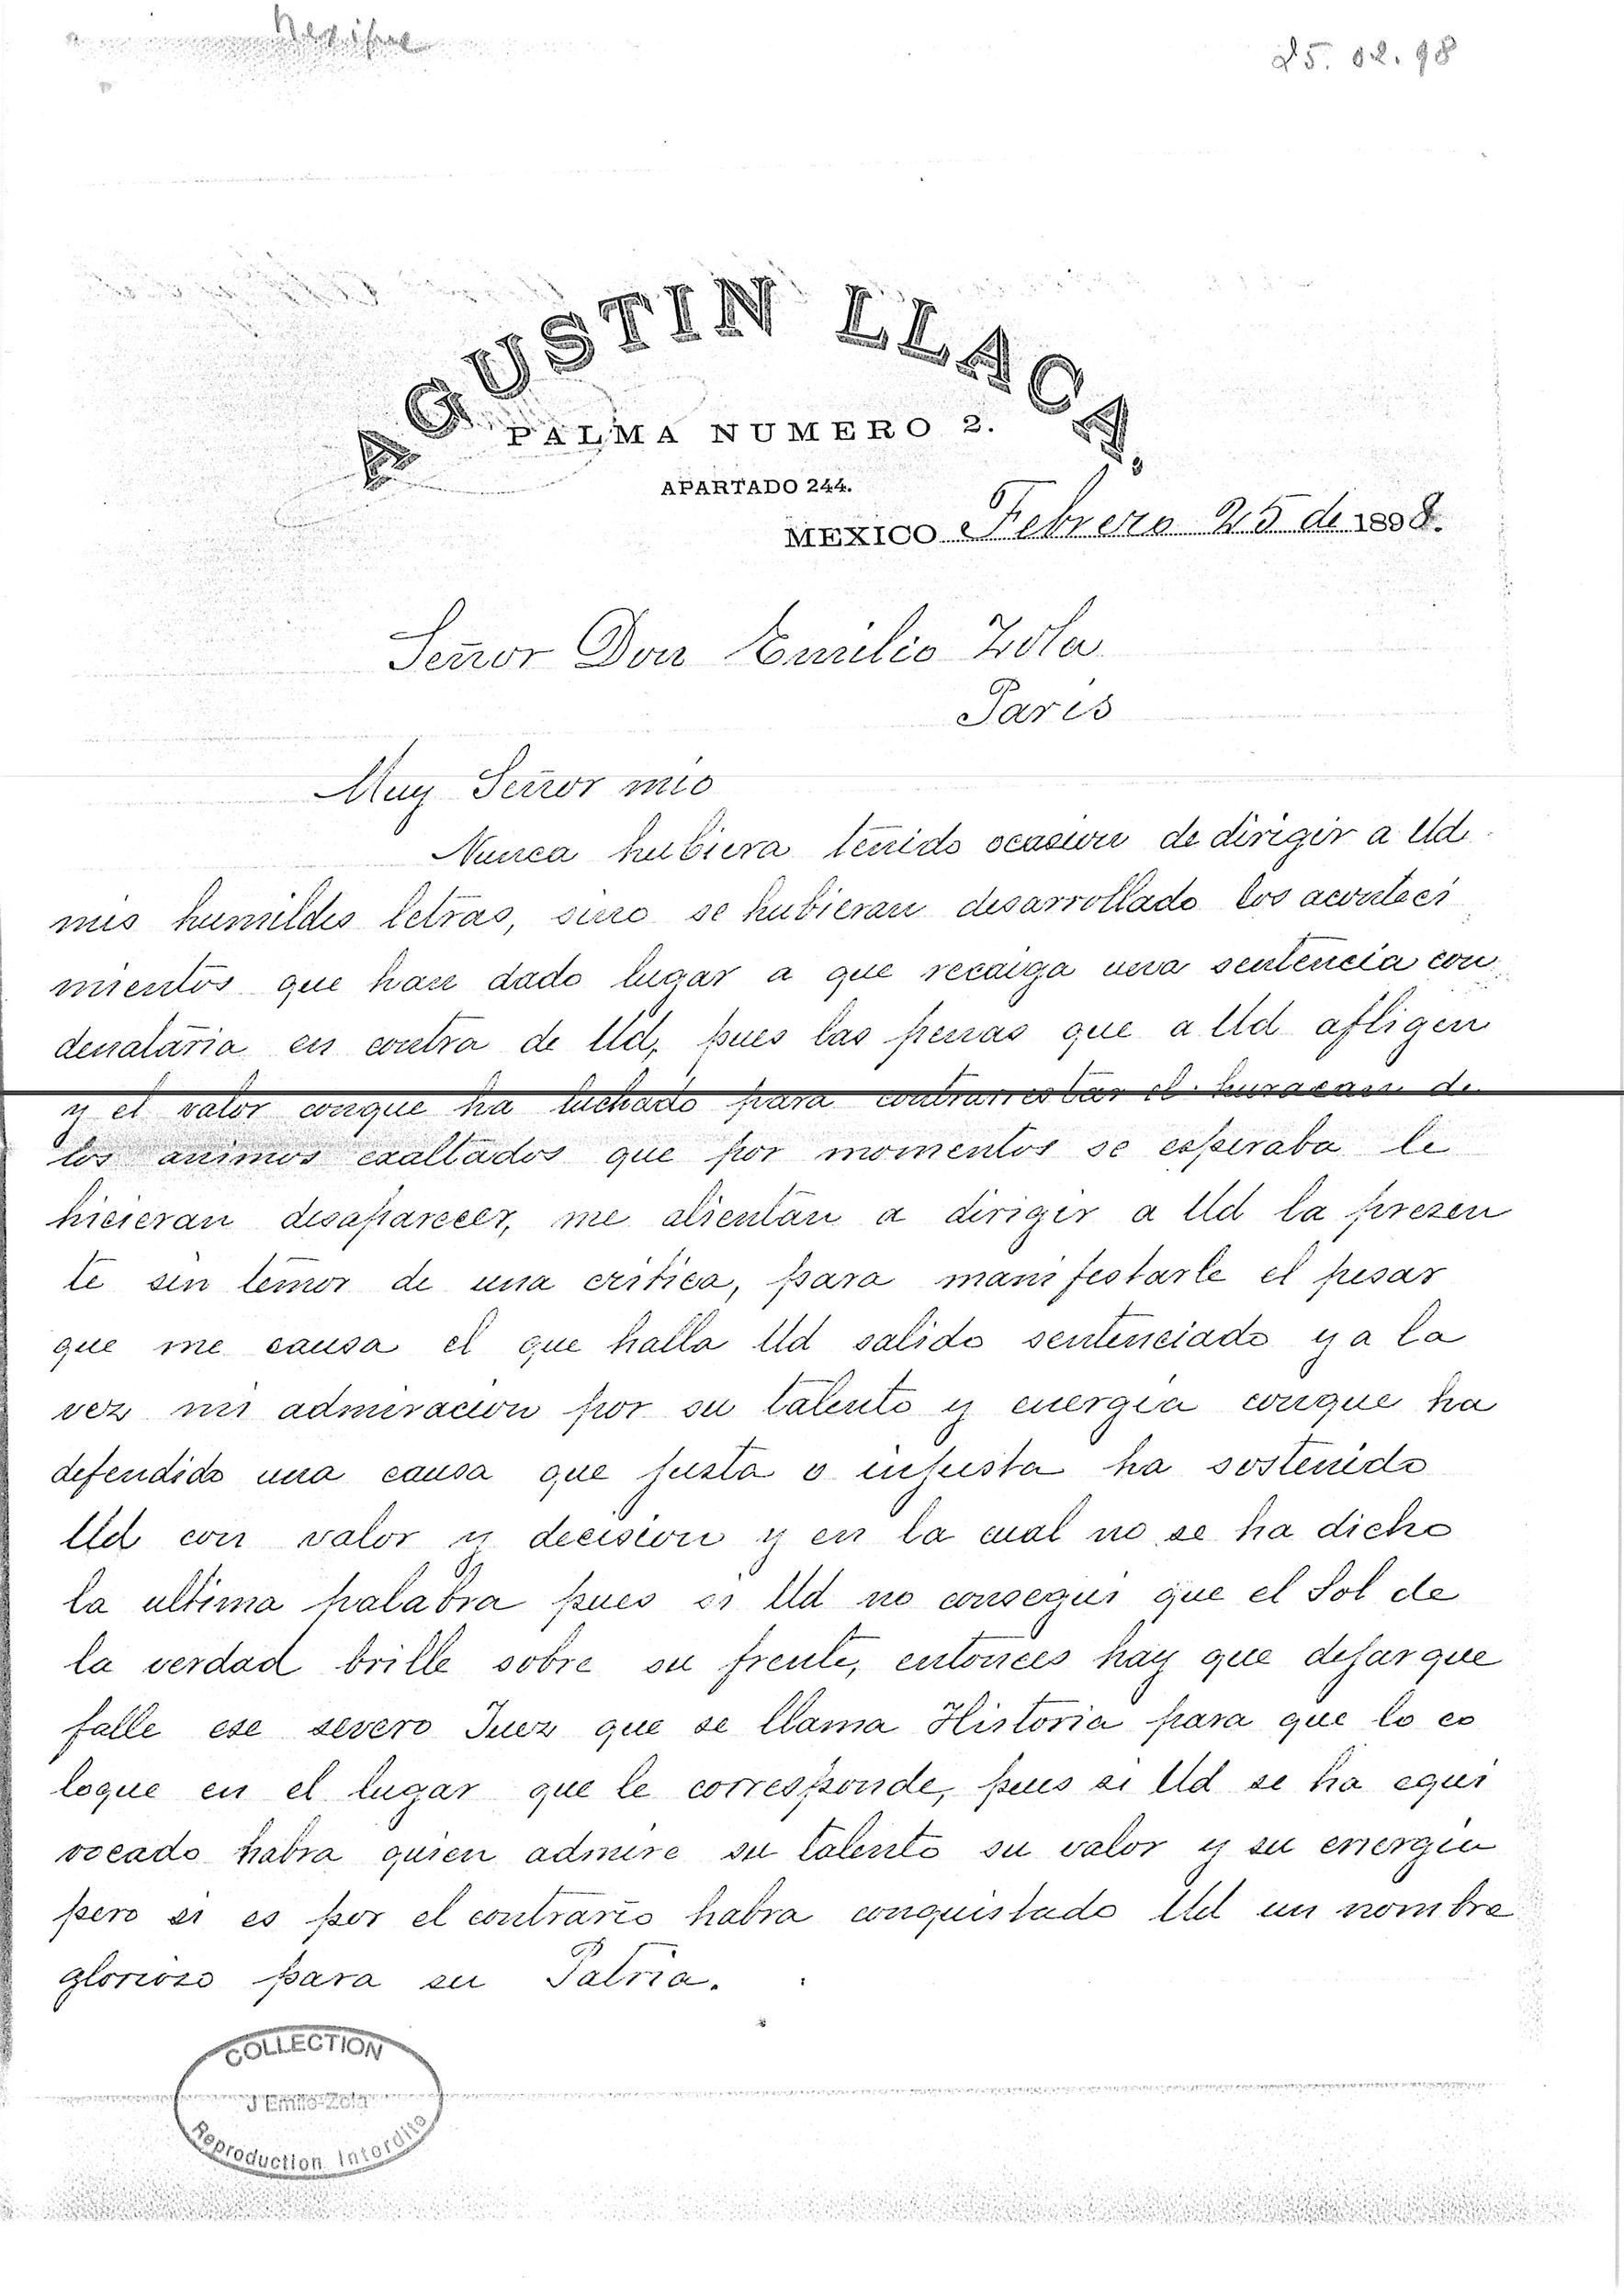 Mexique
25. 02. 98
AGUSTIN LLACA,
PALMA NUMERO 2.
APARTADO 244.
MEXICO Febrero 25 de 1898.
Señor Don Emilio Zola
Paris
Muy Señor mio
Nunca hubiera tenido ocasion de dirigir a Ud
mis humildes letras, sino se hubieran desarrollado los aconteci
mientos que han dado lugar a que recaiga una sentencia con
denataria en contra de Ud, pues las penas que a Ud afligen
y el valor conque ha luchado para contrarrestar el huracan de
los animos exaltados que por momentos se esperaba le
hicieran desaparecer, me alientan a dirigir a Ud la presen
te sin temor de una critica, para manifestarle el pesar
que me causa el que halla Ud salido sentenciado y a la
vez mi admiracion por su talento y energia conque ha
defendido una causa que justa o injusta ha sostenido
Ud con valor y decision y en la cual no se ha dicho
la ultima palabra pues si Ud no consegui que el Sol de
la verdad brille sobre su frente, entonces hay que dejar que
falle ese severo Juez que se llama Historia para que lo co
loque en el lugar que le corresponde, pues si Ud se ha equi
vocado habra quien admire su talento su valor y su energia
pero si es por el contrario habra conquistado Ud un nombre
glorioso para su Patria.
COLLECTION
J Emile-Zola
Reproduction Interdite